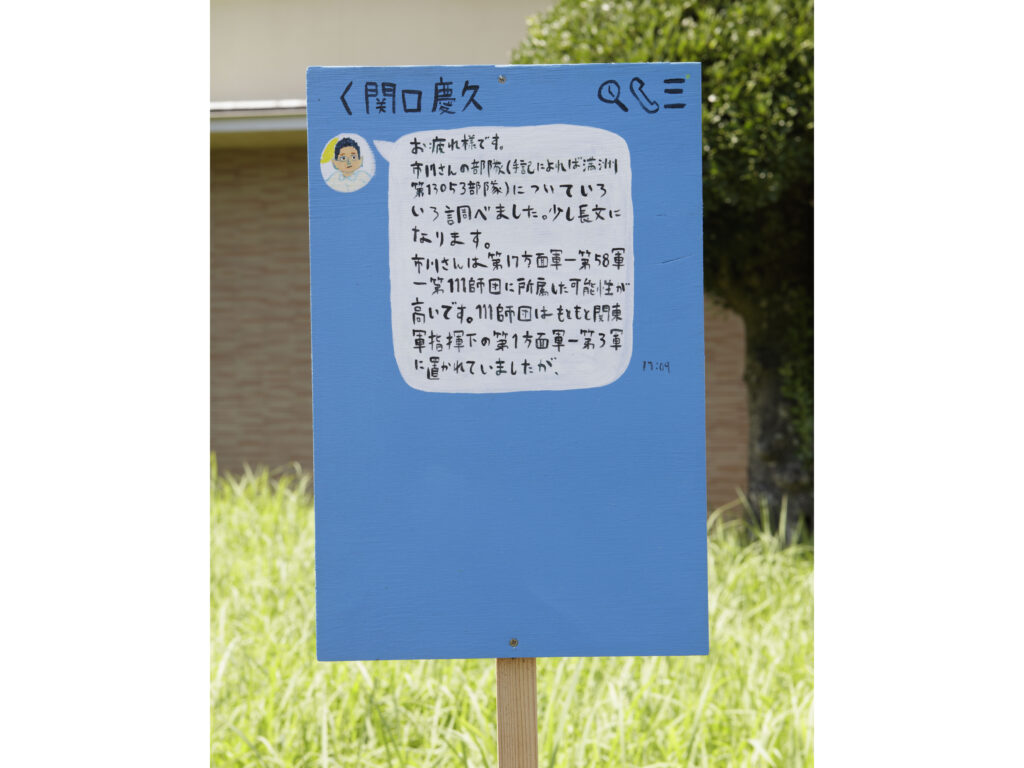 く関口慶久
お疲れ様です。
市川さんの部隊(手記によれば満洲
第13053部隊)についていろ
いろ調べました。少し長文に
なります。
市川さんは第17方面軍ー第58軍
ー第111師団に所属した可能性が
高いです。111師団はもともと関東
軍指揮下の第1方面軍ー第3軍
に置かれていましたが、
17:04